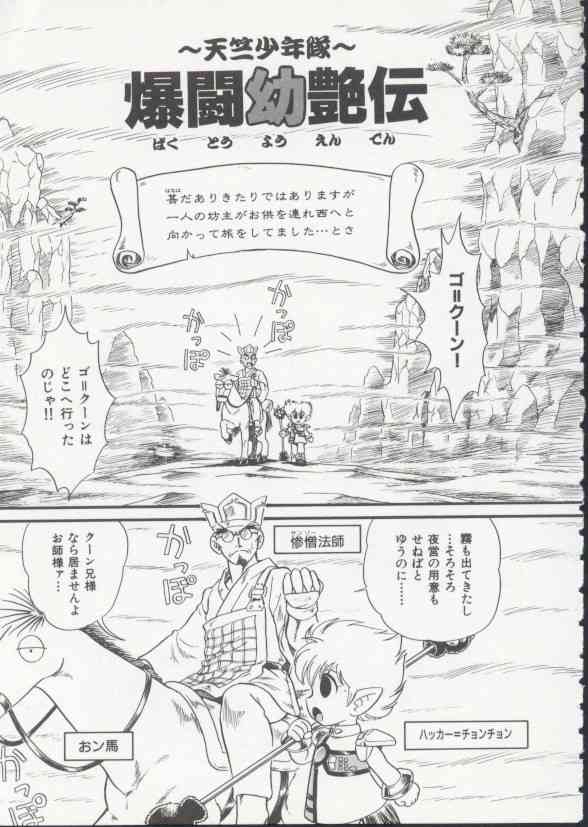 ～天竺少年隊～
爆闘幼艶伝
ばく とう よう えん でん
甚だありきたりではありますが
はなは
一人の坊主がお供を連れ西へと
向かって旅をしてました…とさ
ゴ＝クーン！
かっぽ
かっぽ
ゴ＝クーンは
どこへ行った
のじゃ!!
霧も出てきたし
…そろそろ
夜営の用意も
せねばと
ゆうのに……
惨僧法師
サンゾー
かっぽ
クーン兄様
なら居ませんよ
お師様ァ…
ハッカー＝チョンチョン
おン馬
かっぽ